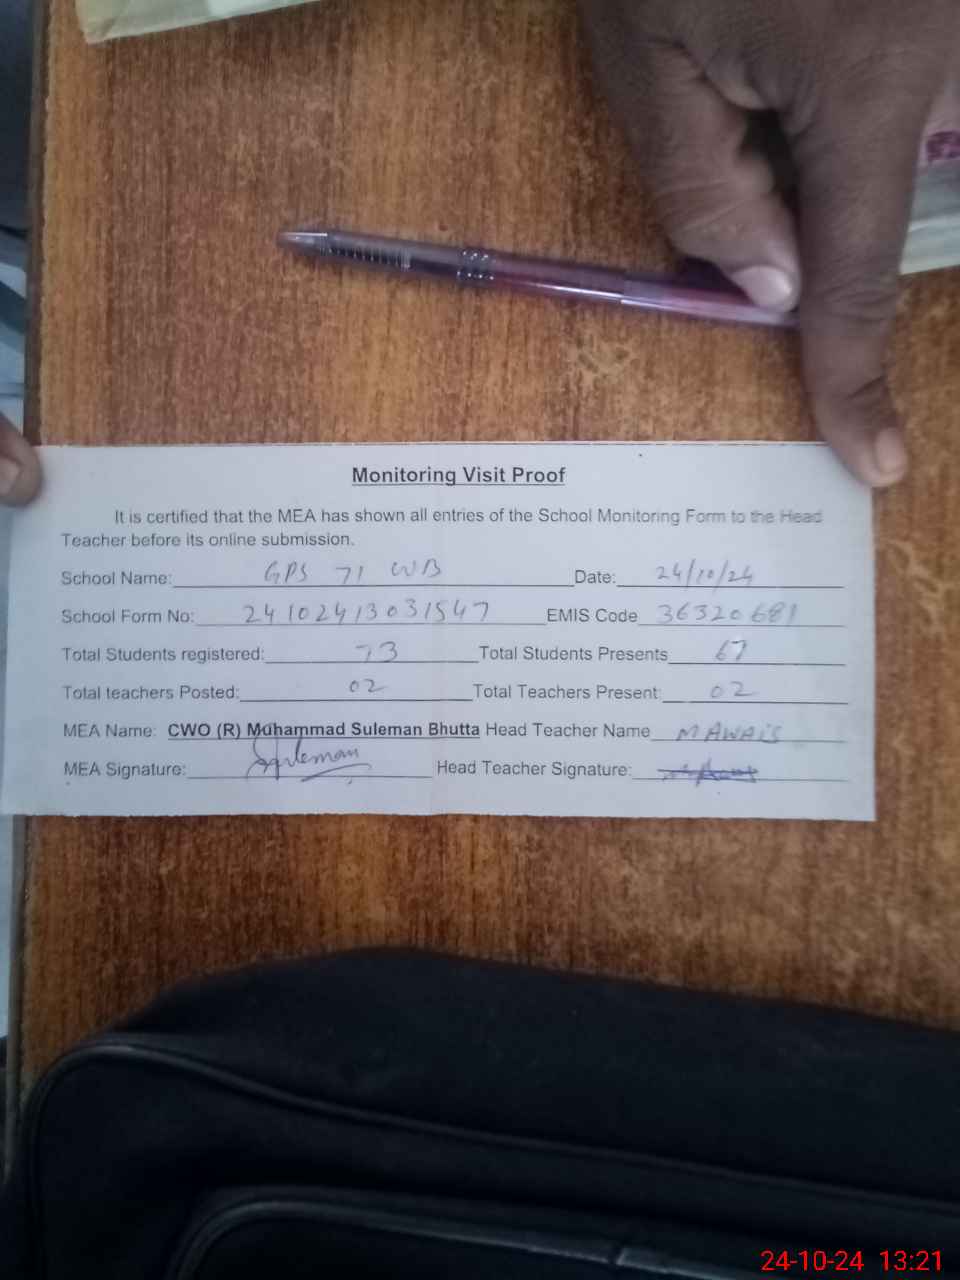 Monitoring Visit Proof
It is certified that the MEA has shown all entries of the School Monitoring Form to the Head
Teacher before its online submission.
School Name: GPS 71 WB Date: 24/10/24
School Form No: 24102413031547 EMIS Code 36320681
Total Students registered: 73 Total Students Presents 67
Total teachers Posted: 02 Total Teachers Present: 02
MEA Name: CWO (R) Muhammad Suleman Bhutta Head Teacher Name M AWAIS
MEA Signature: Suleman Head Teacher Signature:
24-10-24 13:21